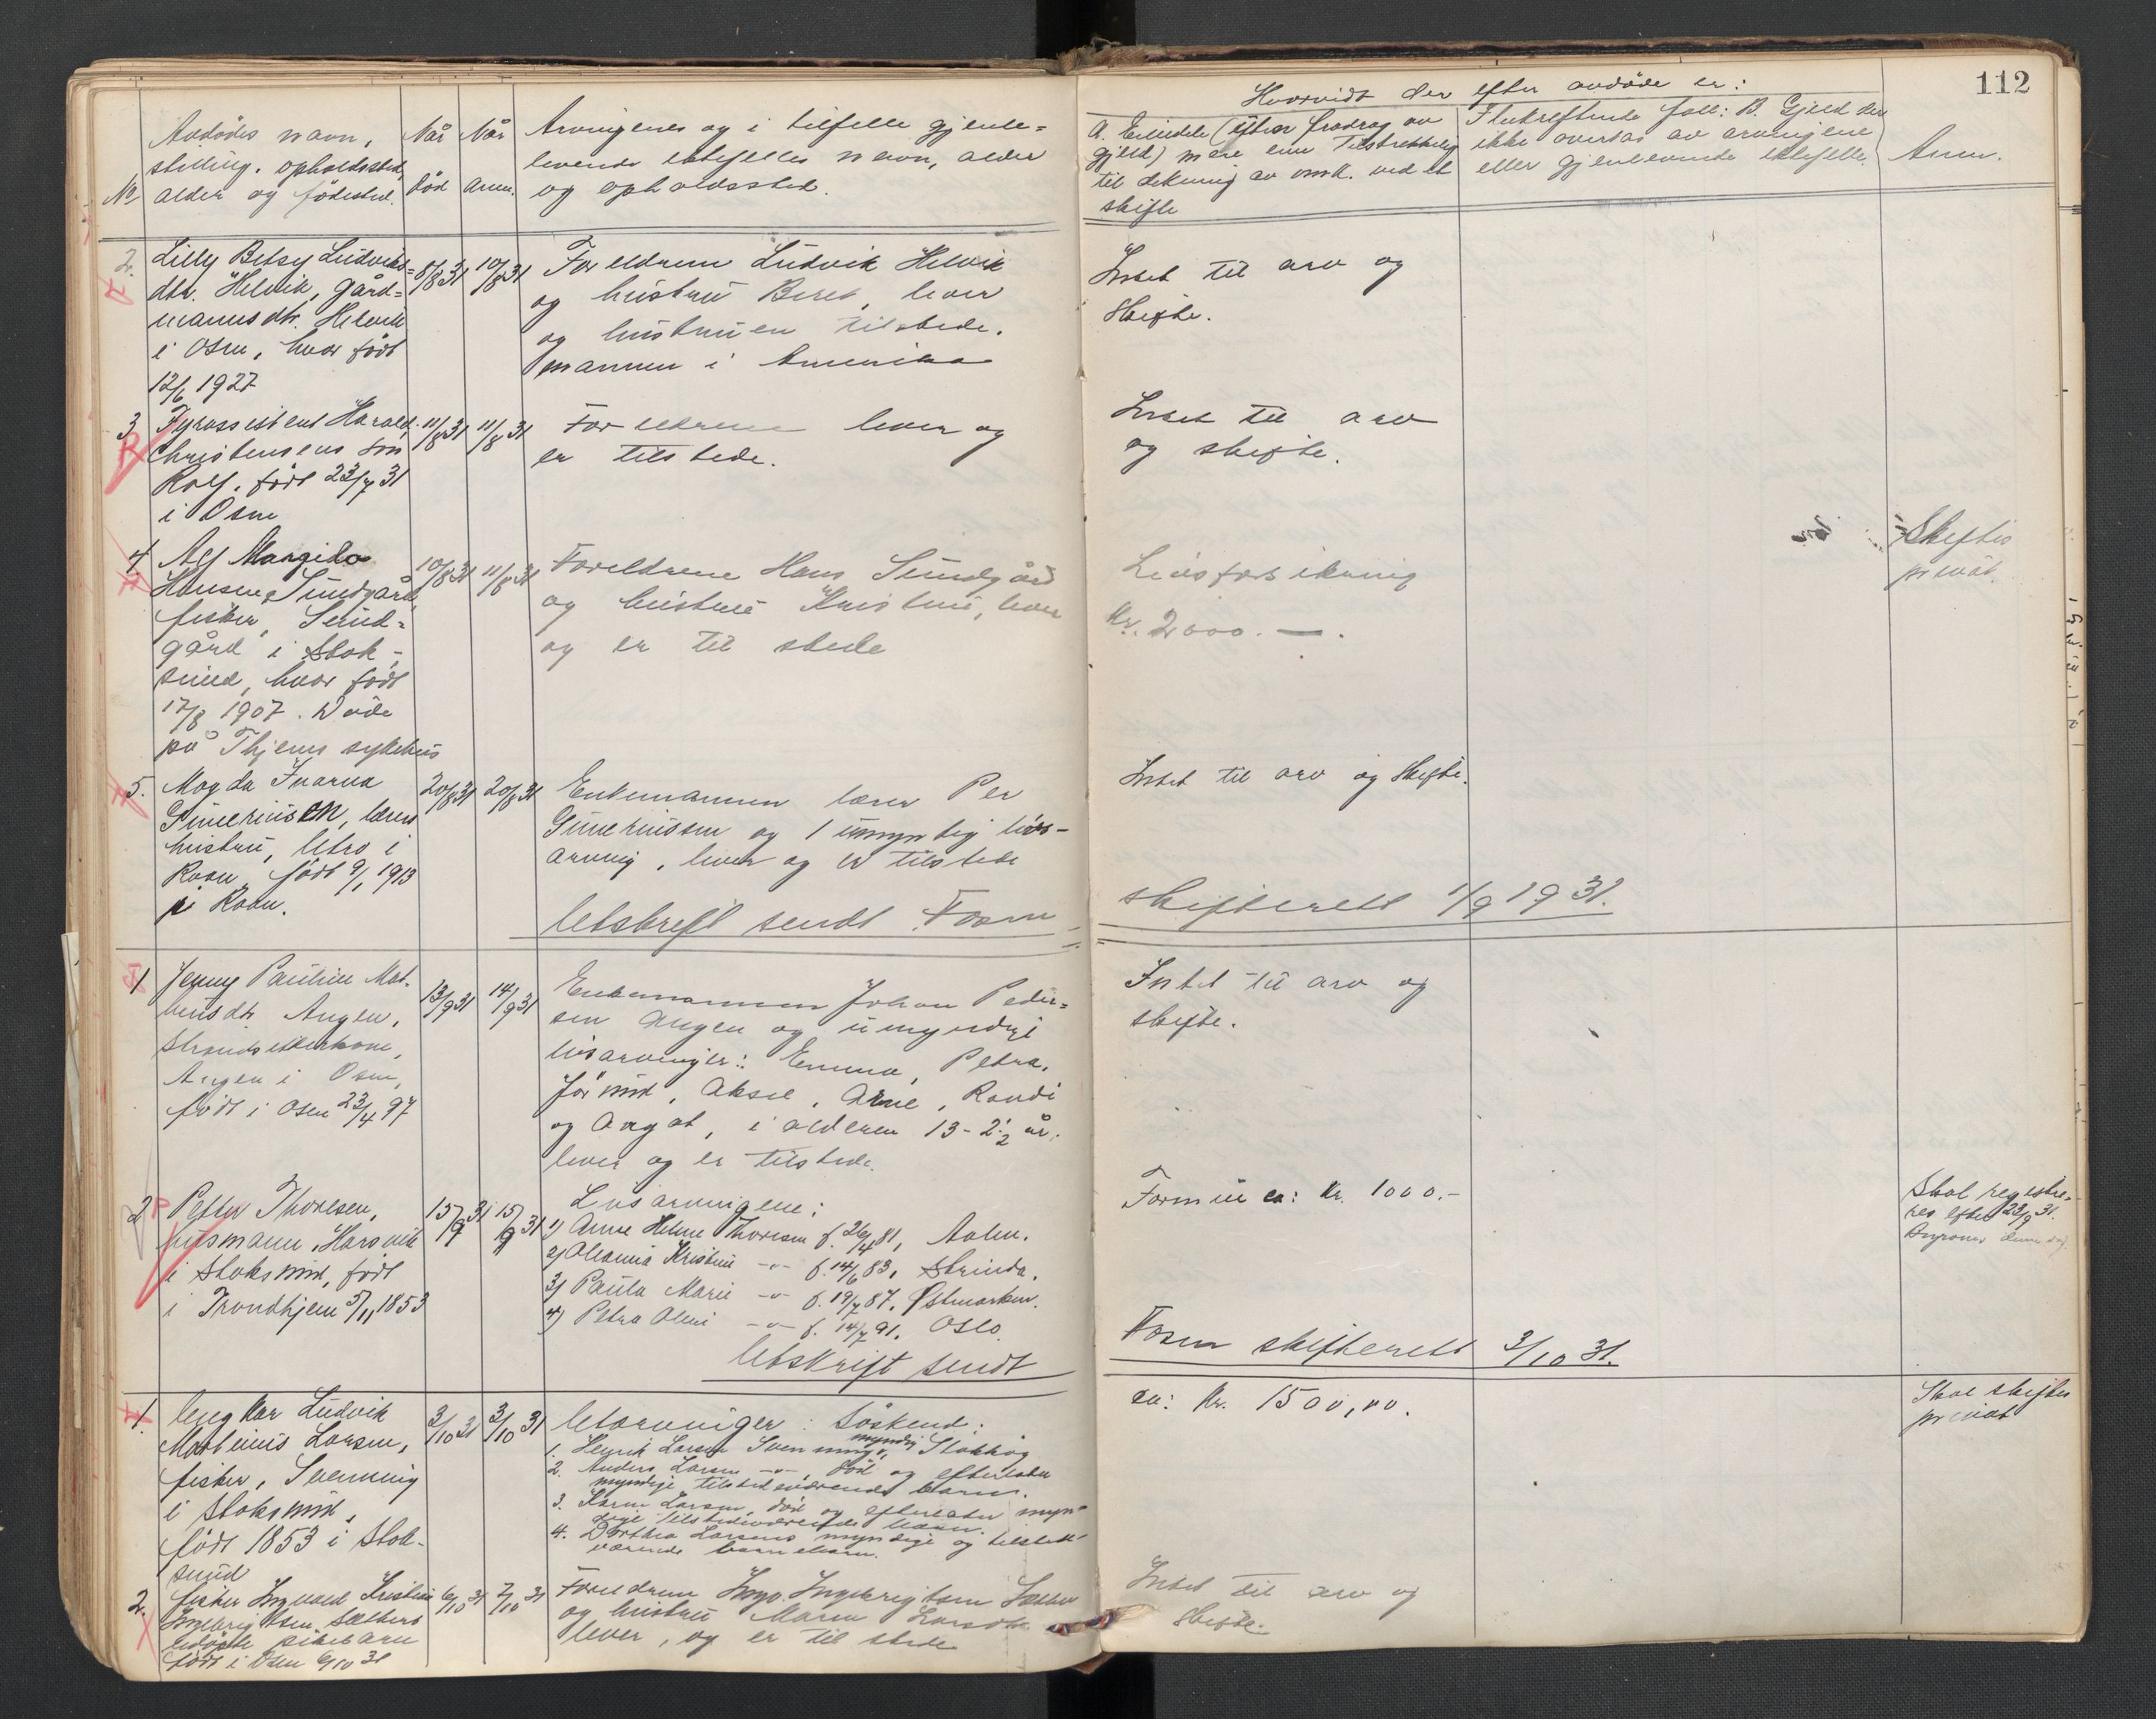 112
Avdødes navn,
stilling, opholdssted,
alder og fødested.
No
Når
død
Når
anm.
Arvingenes og i tilfelle gjenle=
levende ektefelles navn, alder
og opholdssted.
Hvorvidt der efter avdøde er:
A. Eiendele (efter fradrag av
gjeld) mere enn tilstrekkelig
til dekning av omk. ved et
skifte
I bekreftende fall: B. Gjeld der
ikke overtas av arvingene
eller gjenlevende ektefelle.
Anm.
2.
Lilly Betsy Ludviks=
dtr. Helvik, gård=
mannsdtr. Helvik
i Osen, hvor født
12/6 1927
8/8 31
10/8 31
Foreldrene Ludvik Helvik
og hustru Beret, lever
og hustruen tilstede.
mannen i Amerika
Intet til arv og
skifte.
3
Fyrassistent Harald
Christensens søn
Rolf, født 23/7 31
i Osen
11/8 31
11/8 31
Foreldrene lever og
er tilstede.
Intet til arv
og skifte.
4
Alf Margido
Hansen Sundgård,
fisker, Sund=
gård i Stok-
sund, hvor født
17/8 1907. Døde
på Thjems sykehus
10/8 31
11/8 31
Foreldrene Hans Sundgård
og hustru Kristine, lever
og er til stede
Livsforsikring
Kr. 2000.—.
Skiftes
privat.
5.
Magda Ivarna
Gunerius en, lærer
hustru, Utro i
Roan, født 9/1 1913
i Roan.
20/8 31
20/8 31
Enkemannen lærer Per
Guneriussen og 1 umyndig livs-
arving, lever og er tilstede
Intet til arv og skifte.
Utskrift sendt Fosen
skifterett 1/9 1931.
1
Jenny Pauline Mat-
heusdtr Angen,
strandsitterkone,
Angen i Osen,
født i Osen 23/4 97
13/9 31
14/9 31
Enkemannen Johan Peder=
sen Angen og umyndige
livsarvinger: Emma, Petra,
Jorunn, Aksel, Arne, Randi
og Aagot, i alderen 13-2 1/2 år.
lever og er tilstede.
Intet til arv og
skifte.
2
Petter Thoresen,
husmann, Harsvik
i Stoksund, født
i Trondhjem 5/11 1853
15/9 31
15/9 31
Livsarvingene:
1) Anne Helene Thoresen f. 26/4 81, Aalen.
2) Oleanna Kristine -"- f. 14/6 83, Strinda.
3) Paula Marie -"- f. 19/7 87, Østmarken.
4) Petra Oline -"- f. 14/7 91, Oslo.
Formue ca: Kr. 1000.-
Skal registre-
res efter 22/9 31.
Utskrift sendt
Fosen skifterett 3/10 31.
1.
Ludvik
Matheus Larsen,
fisker, Svenning
i Stoksund,
født 1853 i Stok-
sund
3/10 31
3/10 31
Utarvinger: Søskend:
1. Henrik Larsen Svenning, myndig, Stokkøy
2. Anders Larsen -"-, død og efterlater
myndige tilstedeværende barn.
3. Larsen, død og efterlater myn-
dige tilstedeværende barn.
4. Dorthea Larsens myndige og tilstede-
værende barnebarn.
ca: Kr. 1500,00.
Skal skiftes
privat
2.
fisker Ingvald Kristian
Ingebrigtsen Sætters
udøpte pikebarn
født i Osen 6/10 31
6/10 31
7/10 31
Foreldrene Ingv. Ingebrigtsen Sætter
og hustru Maren Larsdtr
lever, og er til stede
Intet til arv og
skifte.